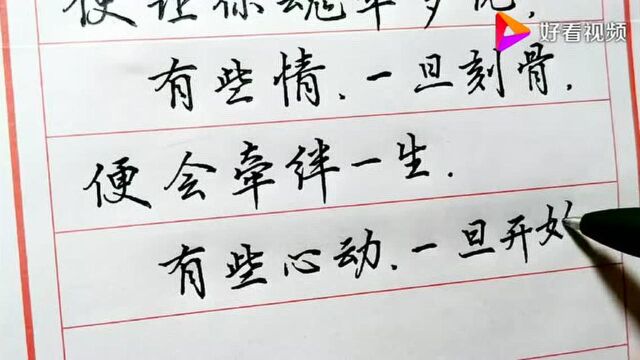 好看视频
便让你魂牵梦
有些情、一旦刻骨，
便会牵绊一生.
有些心动、一旦开